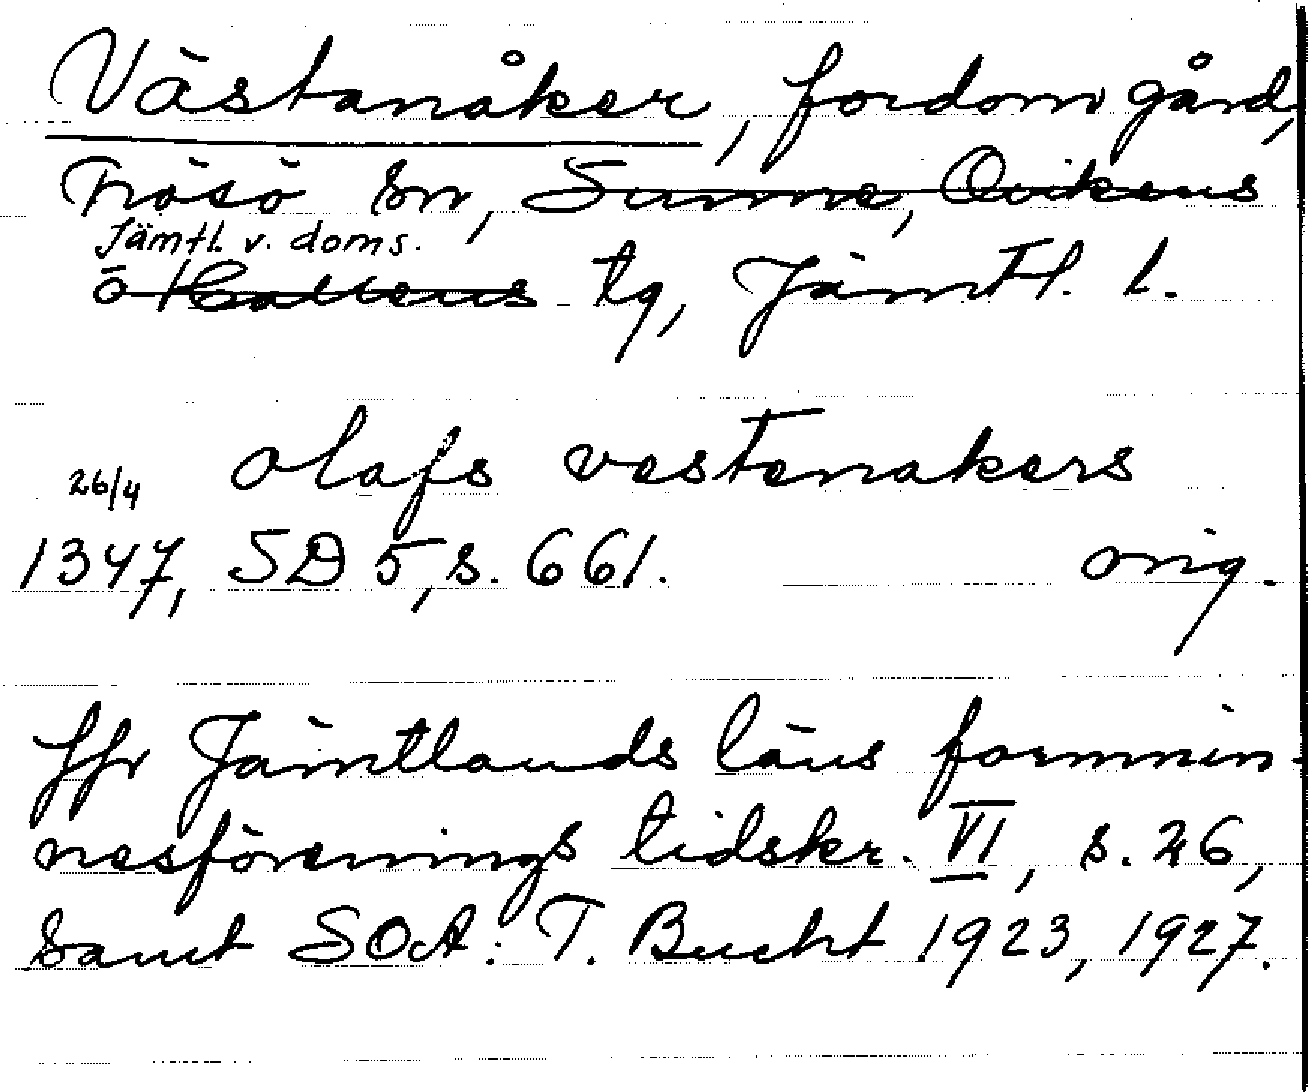 Västanåker, fordom gård,
Frösö sn, Sunne, Ovikens
Jämtl. v. doms.
o Hallens tg, Jämtl. l.
olafs vestanakers
26/4
1347, SD 5, s. 661. orig.
Jfr Jämtlands läns fornmin-
nesförenings tidskr. VI, s. 26,
samt SOA: T. Bucht 1923, 1927.